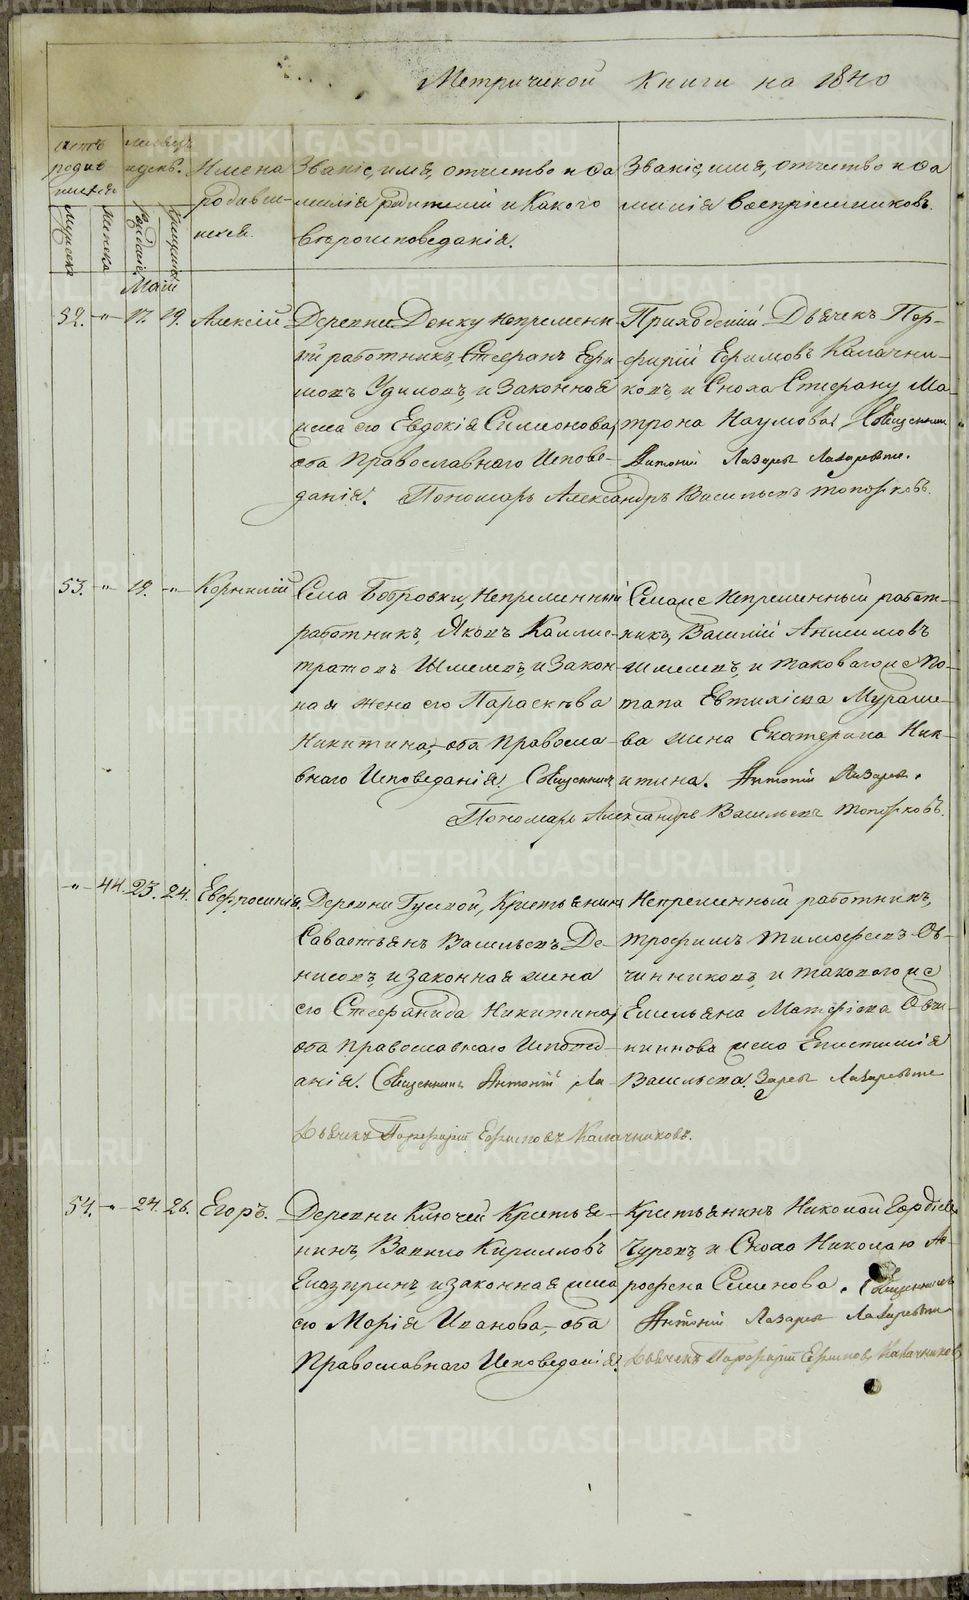 Метрической Книги на 1840
Счетъ родившихся
Мужеска
Женска
Месяцъ и день.
Рождение
Крещение
Имена родившихся.
Званіе, имя, отчество и фамилія родителей и какого вероисповеданія.
Званіе, имя, отчество и фамилія воспріемниковъ.
Май
52. -"- 17. 19. Алексій
Деревни
непременный работникъ, Стефанъ Ефи-
мовъ Удиловъ, и законная
жена его Евдокія Симеонова,
оба православнаго Испове-
данія. Пономарь Александръ Васильевъ Топорковъ.
Приходский Дьячекъ Пор-
фирій Ефимовъ Калачни-
ковъ, и Сноха Стефану Ма-
трона Наумова. Священникъ
Антоній Лазаревъ Лазаревичъ.
53. -"- 19. -"- Корнилій
Села Бобровки, Непременный
работникъ, Яковъ Каллис-
тратовъ Шмелевъ, и закон-
ная жена его Параскева
Никитина, оба правосла-
внаго Исповеданія. Священникъ
Селаже Непременный работ-
никъ, Василій Анисимовъ
Шмелевъ, и таковагоже По-
тапа Евтихіева Мураше-
ва жена Екатерина Ник-
итина. Антоній Лазаревъ.
Пономарь Александръ Васильевъ Топорковъ.
-"- 44. 23. 24. Евфросинія.
Деревни Гуской, Крестьянинъ
Савастьянъ Васильевъ Де-
нисовъ, и законная жена
его Стефанида Никитина,
оба православнаго Исповед-
анія. Священникъ Антоній Ла-
Непременный работникъ,
Трофимъ Тимофеевъ Ов-
чинниковъ, и таковагоже
Емельяна Матфіева Овчи-
нникова жена Епистимія
Васильева. заревъ Лазаревичъ
Дьячекъ Порфирій Ефимовъ Калачниковъ.
54. -"- 24. 26. Егоръ.
Деревни Ключей Крестья-
нинъ, Вавило Кириловъ
Елазкинъ и законная жена
его Марія Иванова, оба
Православнаго Исповеданія.
Крестьянинъ Николай Гордіевъ
Чуровъ, и Сноха Николаю Аг-
рофена Семенова. Священникъ
Антоній Лазаревъ Лазаревичъ
Дьячекъ Порфирій Ефимовъ Калачниковъ
METRIKI.GASO-URAL.RU